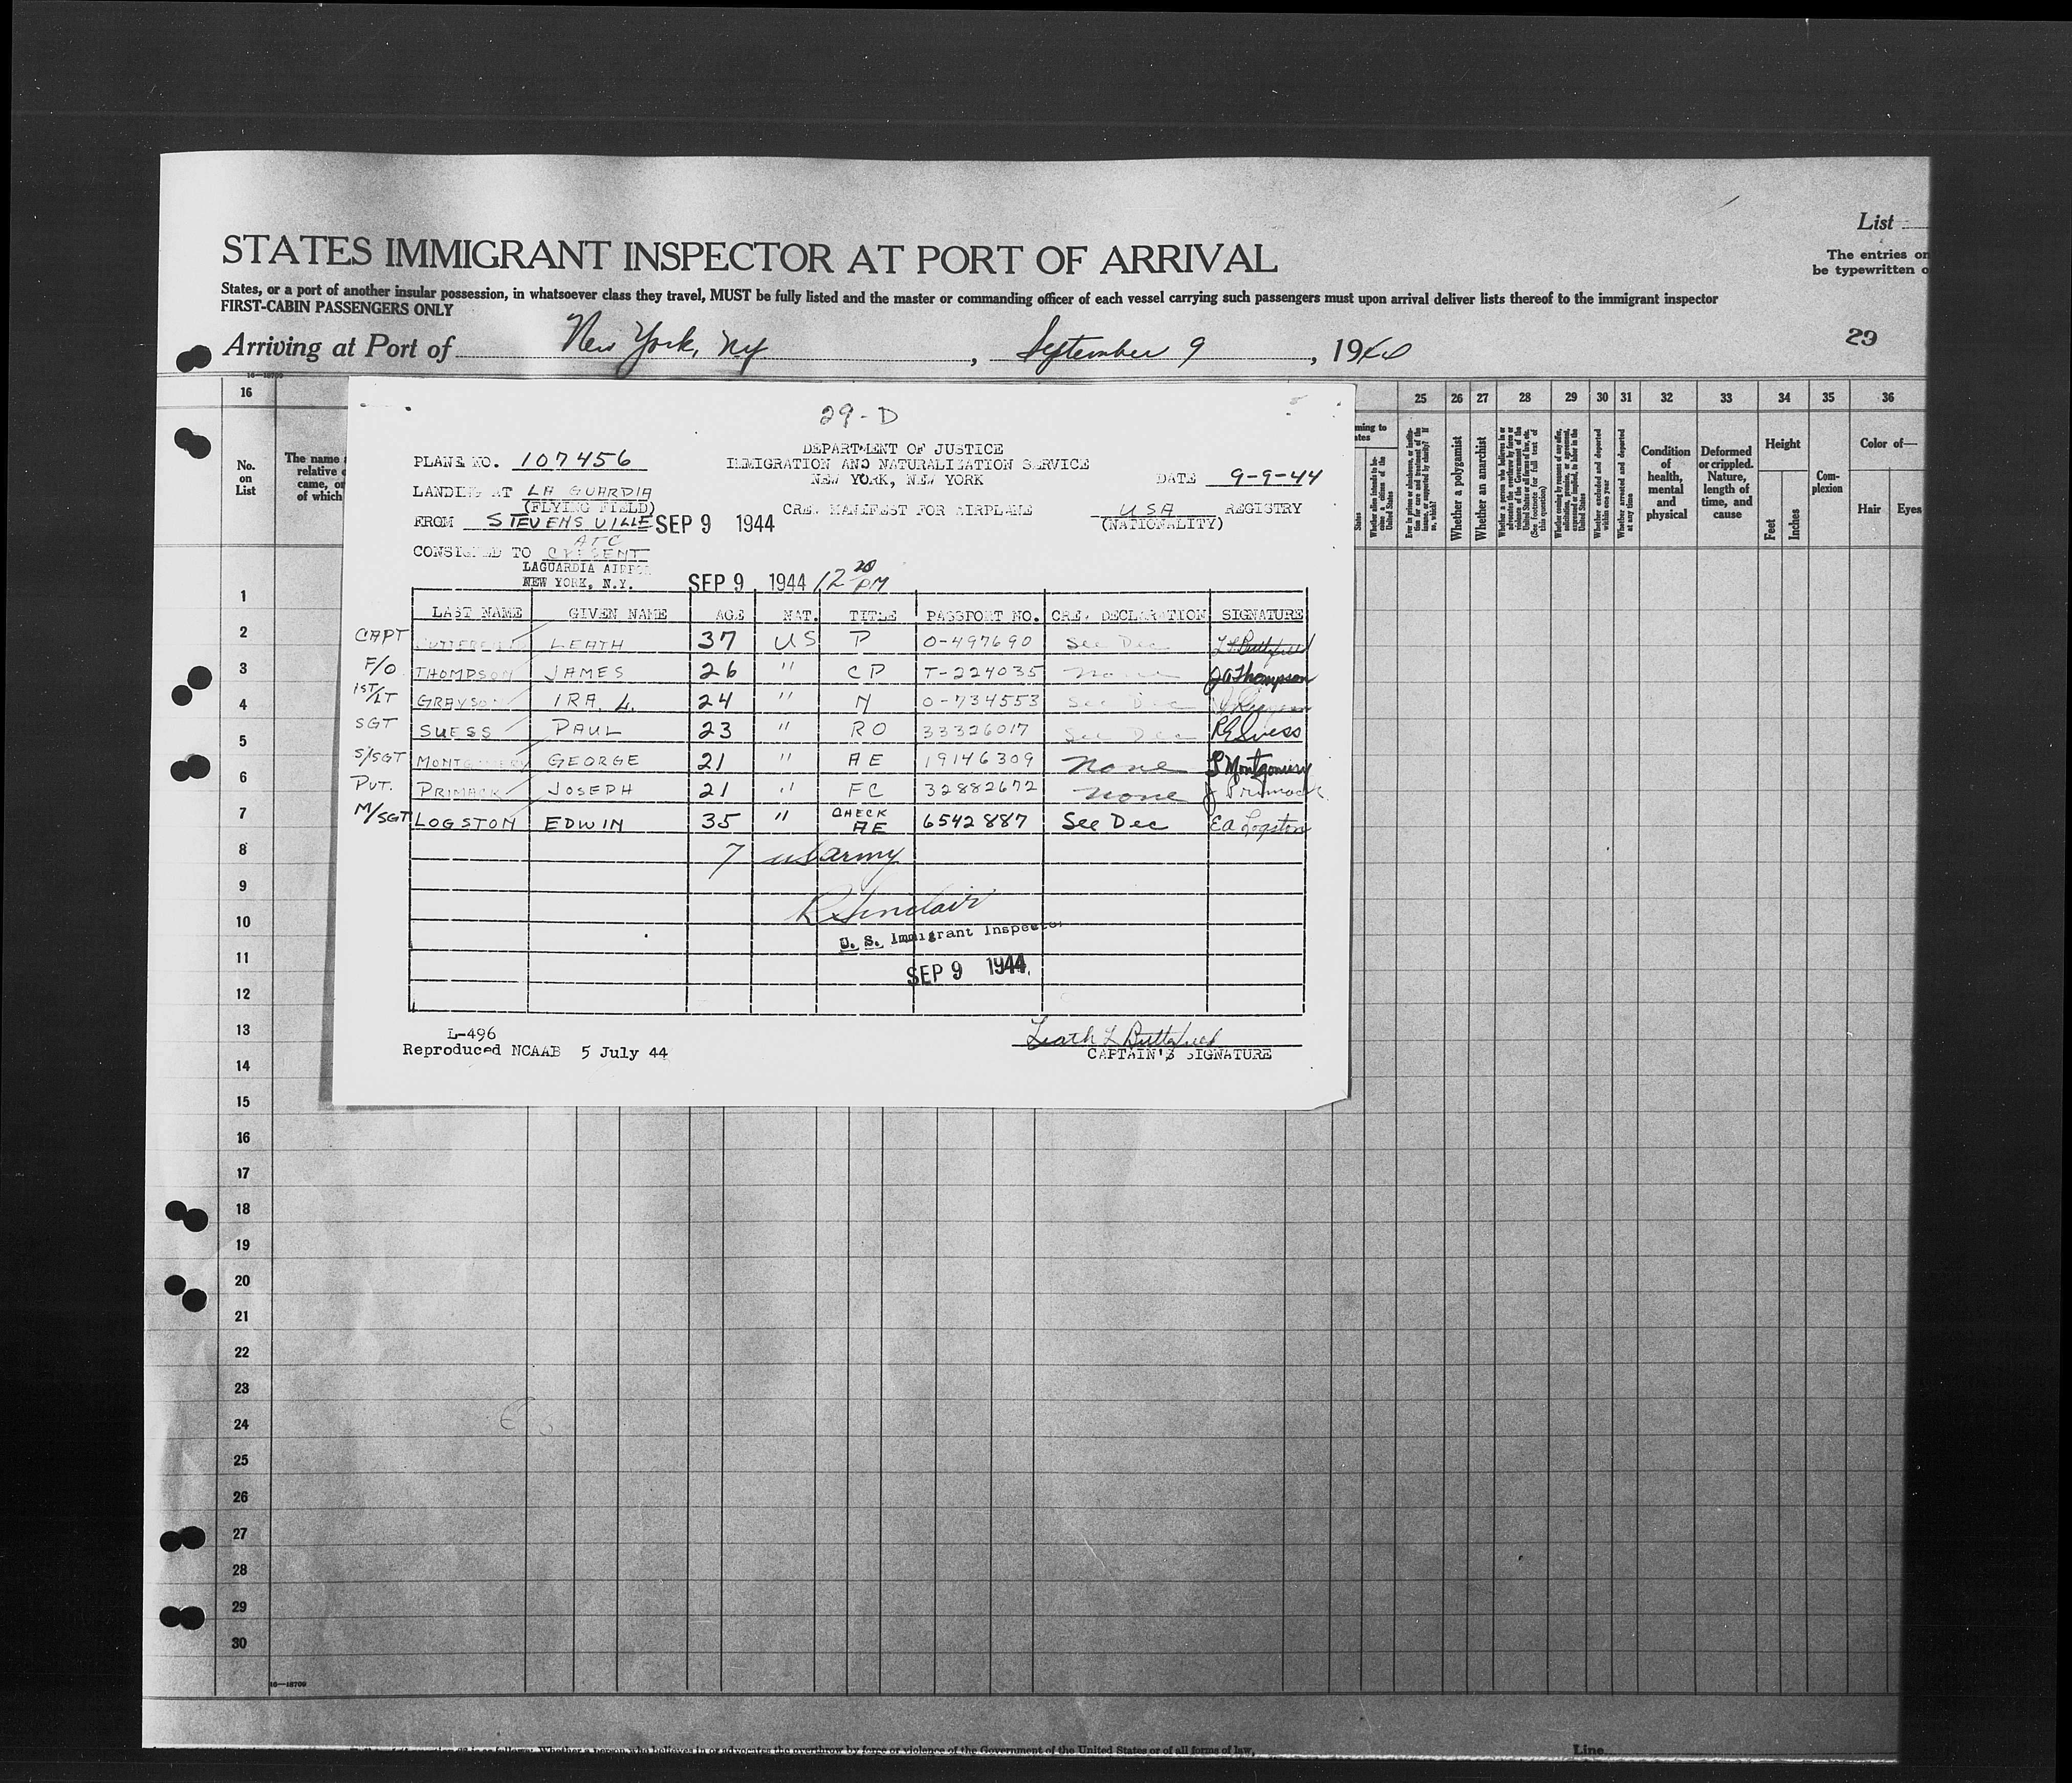 List
STATES IMMIGRANT INSPECTOR AT PORT OF ARRIVAL
The entries on
be typewritten o
States, or a port of another insular possession, in whatsoever class they travel, MUST be fully listed and the master or commanding officer of each vessel carrying such passengers must upon arrival deliver lists thereof to the immigrant inspector
FIRST-CABIN PASSENGERS ONLY
Arriving at Port of New York, NY, September 9, 1944
29
16 25 26 27 28 29 30 31 32 33 34 35 36
No. on List
The name
relative
came, or
of which
Whether a polygamist
Whether an anarchist
Whether excluded and deported within one year
Whether arrested and deported at any time
Condition of health, mental and physical
Deformed or crippled. Nature, length of time, and cause
Height
Feet
Inches
Com-plexion
Color of—
Hair
Eyes
29-D
DEPARTMENT OF JUSTICE
IMMIGRATION AND NATURALIZATION SERVICE
NEW YORK, NEW YORK
PLANE NO. 107456
DATE 9-9-44
LANDING AT LA GUARDIA
(FLYING FIELD)
CREW MANIFEST FOR AIRPLANE
USA REGISTRY
(NATIONALITY)
FROM STEVENSVILLE SEP 9 1944
ATC
CONSIGNED TO
LAGUARDIA AIRPO
NEW YORK, N.Y.
SEP 9 1944 12 20 PM
LAST NAME GIVEN NAME AGE NAT. TITLE PASSPORT NO. CREW DECLARATION SIGNATURE
CAPT LEATH 37 US P O-497690 See Dec
F/O THOMPSON JAMES 26 " CP T-224035 none JA Thompson
1ST/LT GRAYSON IRA L. 24 " N O-734553 See Dec
SGT SUESS PAUL 23 " RO 33326017 See Dec Suess
S/SGT MONTGOMERY GEORGE 21 " AE 19146309 none Montgomery
PVT. PRIMACK JOSEPH 21 " FC 32882672 none J Primack
M/SGT LOGSTON EDWIN 35 " CHECK AE 6542887 See Dec EA Logston
7 US army
R Sinclair
U. S. Immigrant Inspector
SEP 9 1944
L-496
Reproduced NCAAB 5 July 44
Leath L Butterfield
CAPTAIN'S SIGNATURE
1
2
3
4
5
6
7
8
9
10
11
12
13
14
15
16
17
18
19
20
21
22
23
24
25
26
27
28
29
30
16—18709
Whether a person who believes in or advocates the overthrow by force or violence of the Government of the United States or of all forms of law,
Line